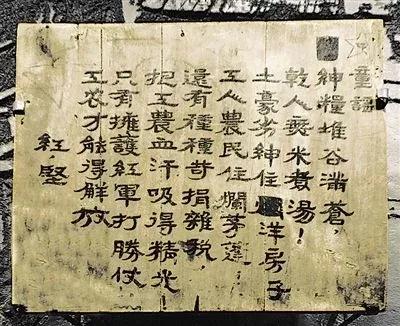 童謡
紳糧堆谷满蒼,
乾人米煮湯!
土豪劣紳住洋房子
工人農民住爛茅蓬;
還有種種苛捐雜税,
把工農血汗吸得精光
只有擁護紅軍打勝仗,
工农才能得解放
紅.堅